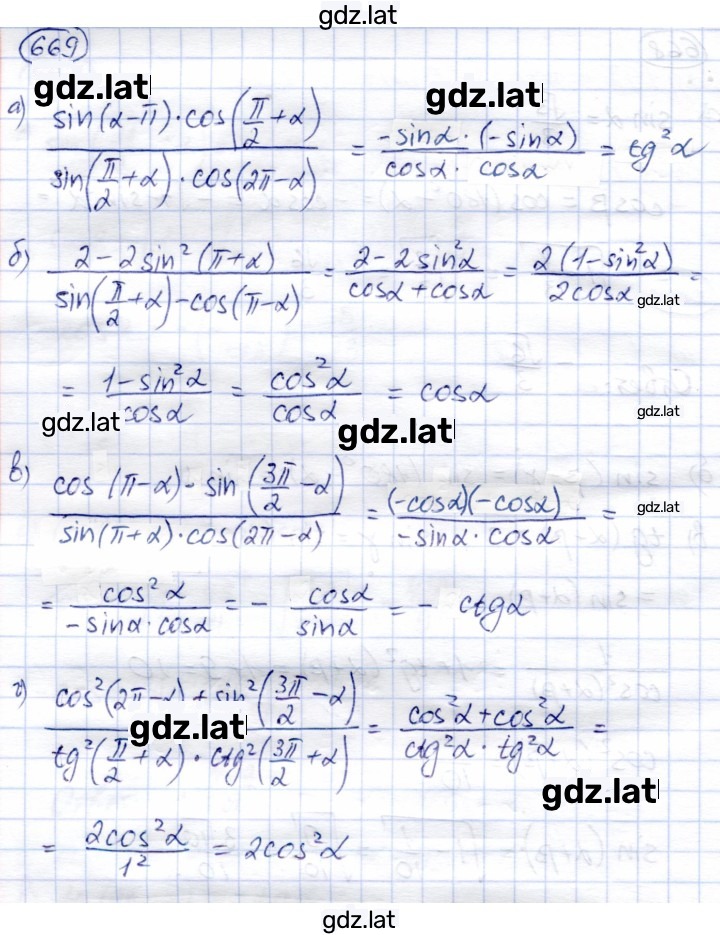 gdz.lat
669
gdz.lat gdz.lat
а) sin(α-π)·cos(π/2+α) / sin(π/2+α)·cos(2π-α) = -sinα·(-sinα) / cosα·cosα = tg²α
б) 2-2sin²(π+α) / sin(π/2+α)-cos(π-α) = 2-2sin²α / cosα+cosα = 2(1-sin²α) / 2cosα =
gdz.lat
= 1-sin²α / cosα = cos²α / cosα = cosα
gdz.lat gdz.lat gdz.lat
в) cos(π-α)-sin(3π/2-α) / sin(π+α)·cos(2π-α) = (-cosα)(-cosα) / -sinα·cosα =
gdz.lat
= cos²α / -sinα·cosα = - cosα / sinα = - ctgα
г) cos²(2π-α)+sin²(3π/2-α) / tg²(π/2+α)·ctg²(3π/2+α) = cos²α+cos²α / ctg²α·tg²α =
gdz.lat
gdz.lat
= 2cos²α / 1² = 2cos²α
gdz.lat